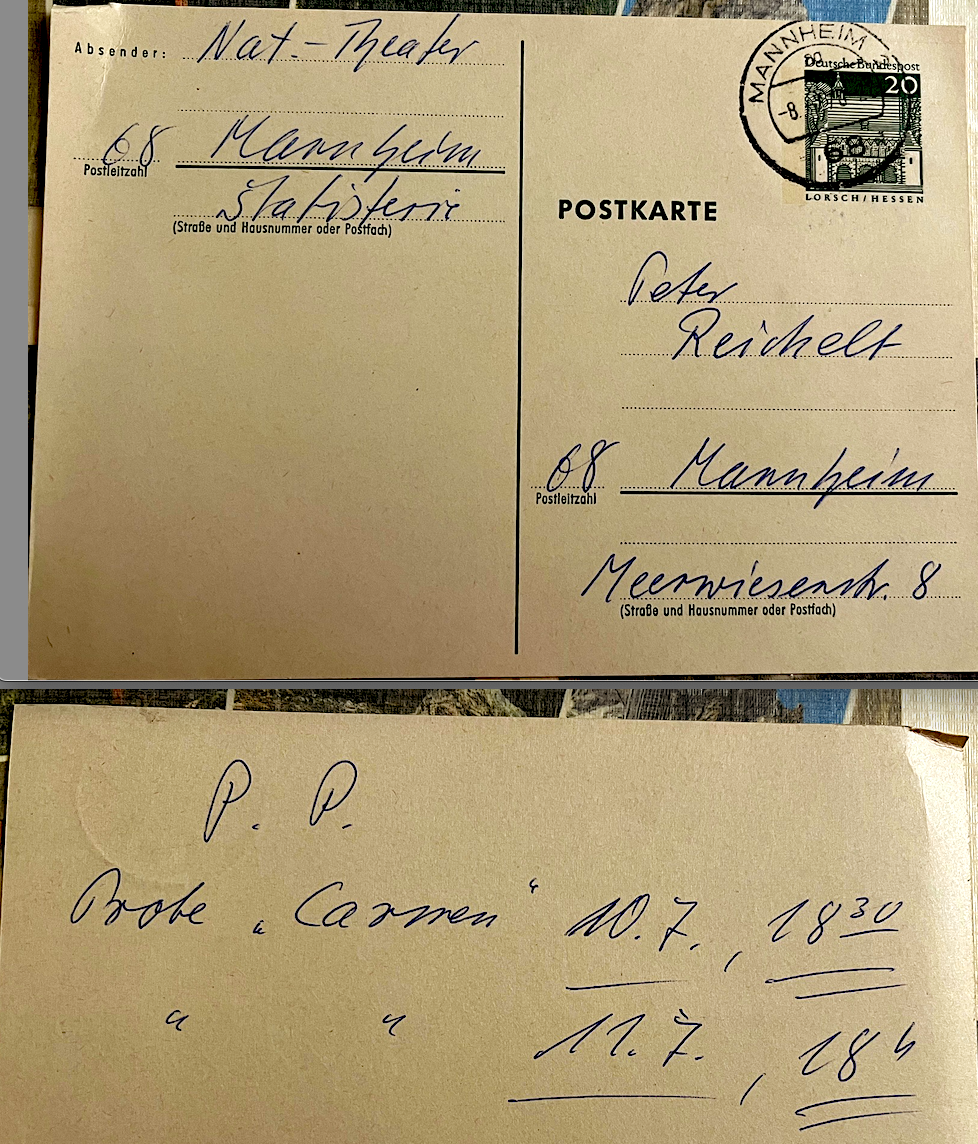 Absender: Nat-Theater
68 Mannheim
Postleitzahl
Statisterie
(Straße und Hausnummer oder Postfach)
MANNHEIM
-8.
68
Deutsche Bundespost
20
LORSCH/HESSEN
POSTKARTE
Peter
Reichelt
68 Mannheim
Postleitzahl
Meerwiesenstr. 8
(Straße und Hausnummer oder Postfach)
P. P.
Probe „Carmen“ 10.7., 18 30
" " 11.7., 18 h